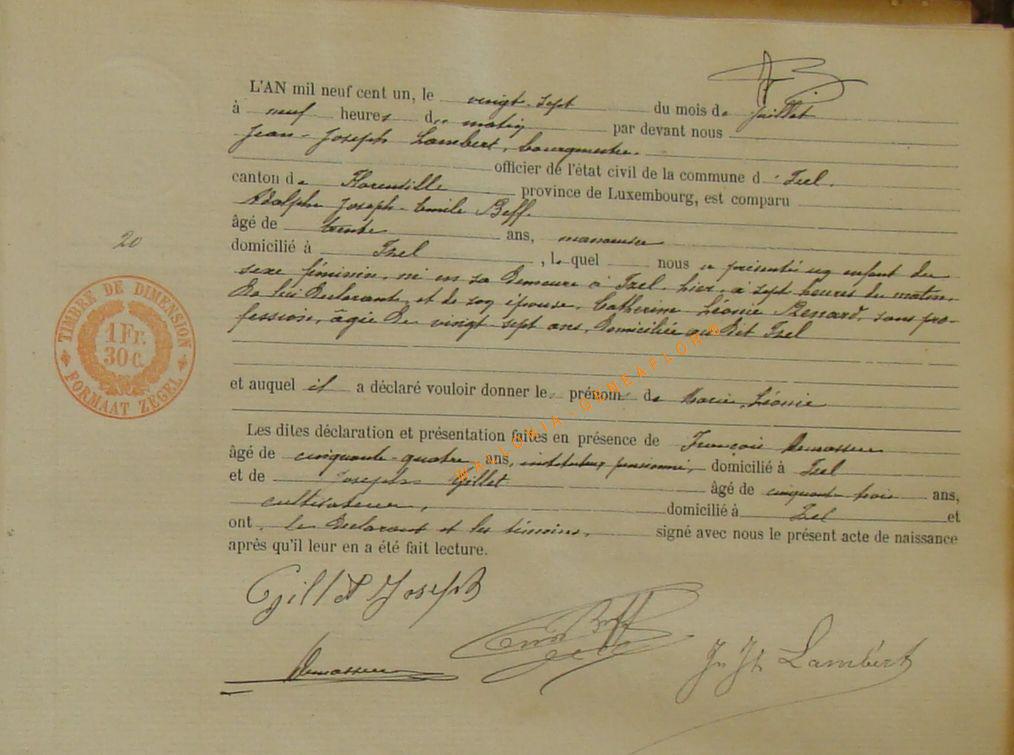 L'AN mil neuf cent un, le vingt-sept du mois de juillet
à neuf heures du matin par devant nous
Jean-Joseph Lambert, bourgmestre
officier de l'état civil de la commune d'Izel.
canton de Florenville province de Luxembourg, est comparu
Adolphe Joseph-Emile Beff
âgé de trente ans, manoeuvre
domicilié à Izel, lequel nous a présenté un enfant du
20
sexe féminin, né en sa demeure à Izel, hier, à sept heures du matin,
de lui déclarant, et de son épouse, Catherine Léonie Renard, sans pro-
fession, âgée de vingt sept ans, domiciliée au dit Izel
TIMBRE DE DIMENSION
1 Fr.
30 c.
FORMAAT ZEGEL
WALLONIA-GENEAFLOR
et auquel il a déclaré vouloir donner le prénom de Marie Léonie
Les dites déclaration et présentation faites en présence de François Demasseur
âgé de cinquante-quatre ans, instituteur pensionné, domicilié à Izel
et de Joseph Gillet âgé de cinquante trois ans,
cultivateur, domicilié à Izel et
ont le déclarant et les témoins, signé avec nous le présent acte de naissance
après qu'il leur en a été fait lecture.
Gillet Joseph
Beff
Demasseur
Jn Jh Lambert